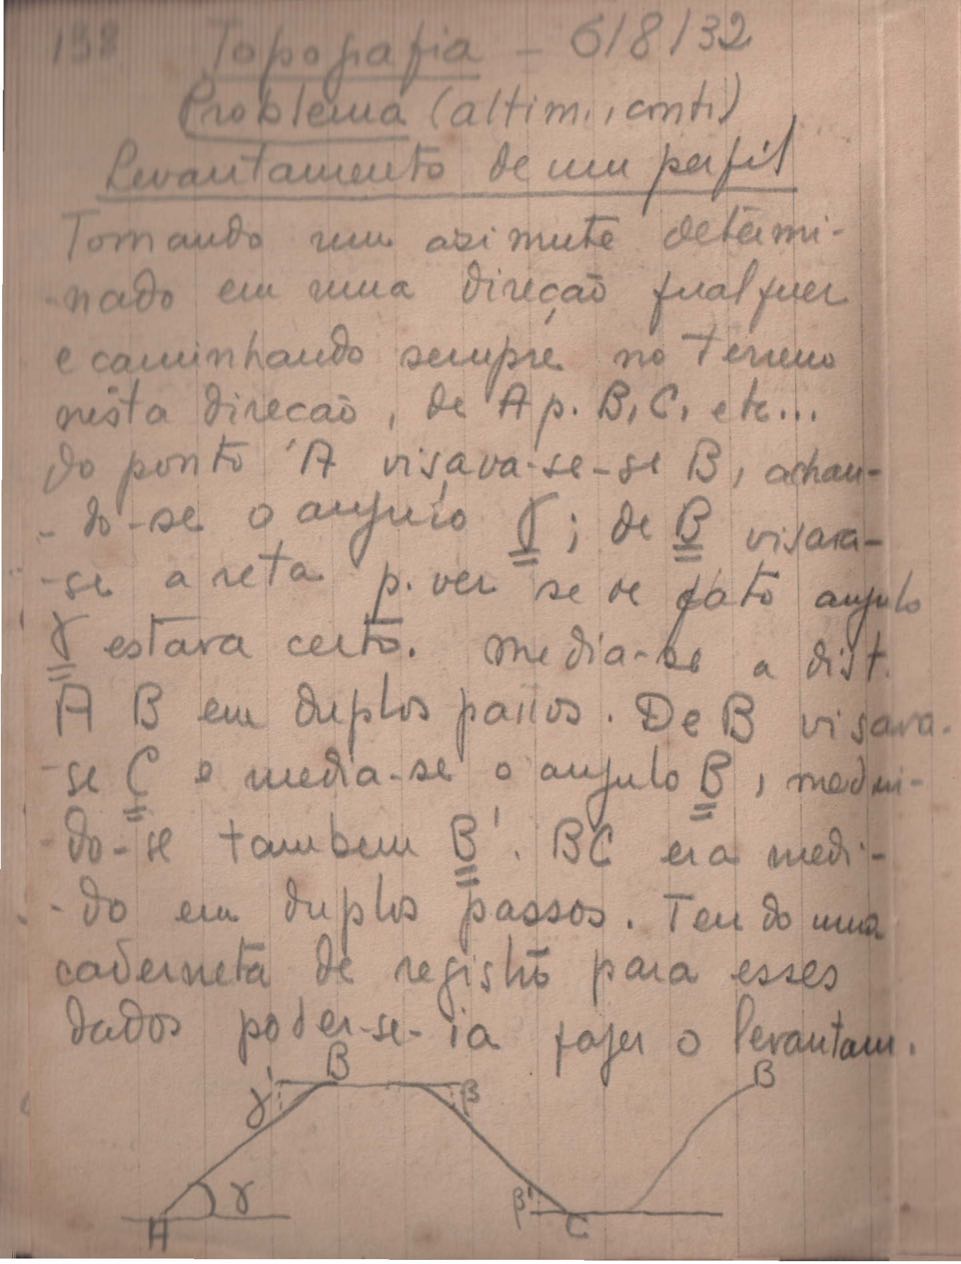 138 Topografia - 6/8/32
Problema (altim., cont.)
Levantamento de um perfil
Tomando um azimute determi-
-nado em uma direção qualquer
e caminhando sempre no terreno
nésta direcão, de A p. B, C, etc...
do ponto A visava-se-se B, achan-
-do-se o angulo γ; de B visava-
-se a reta p. ver se de fato angulo
γ estava certo. media-se a dist.
A B em duplos passos. De B visava-
-se C e media-se o angulo B, medin-
-do-se tambem B'. BC era medi-
-do em duplos passos. Tendo uma
caderneta de registo para esses
dados poder-se-ia fazer o levantam.
B
B
γ'
β
γ
β'
A
C